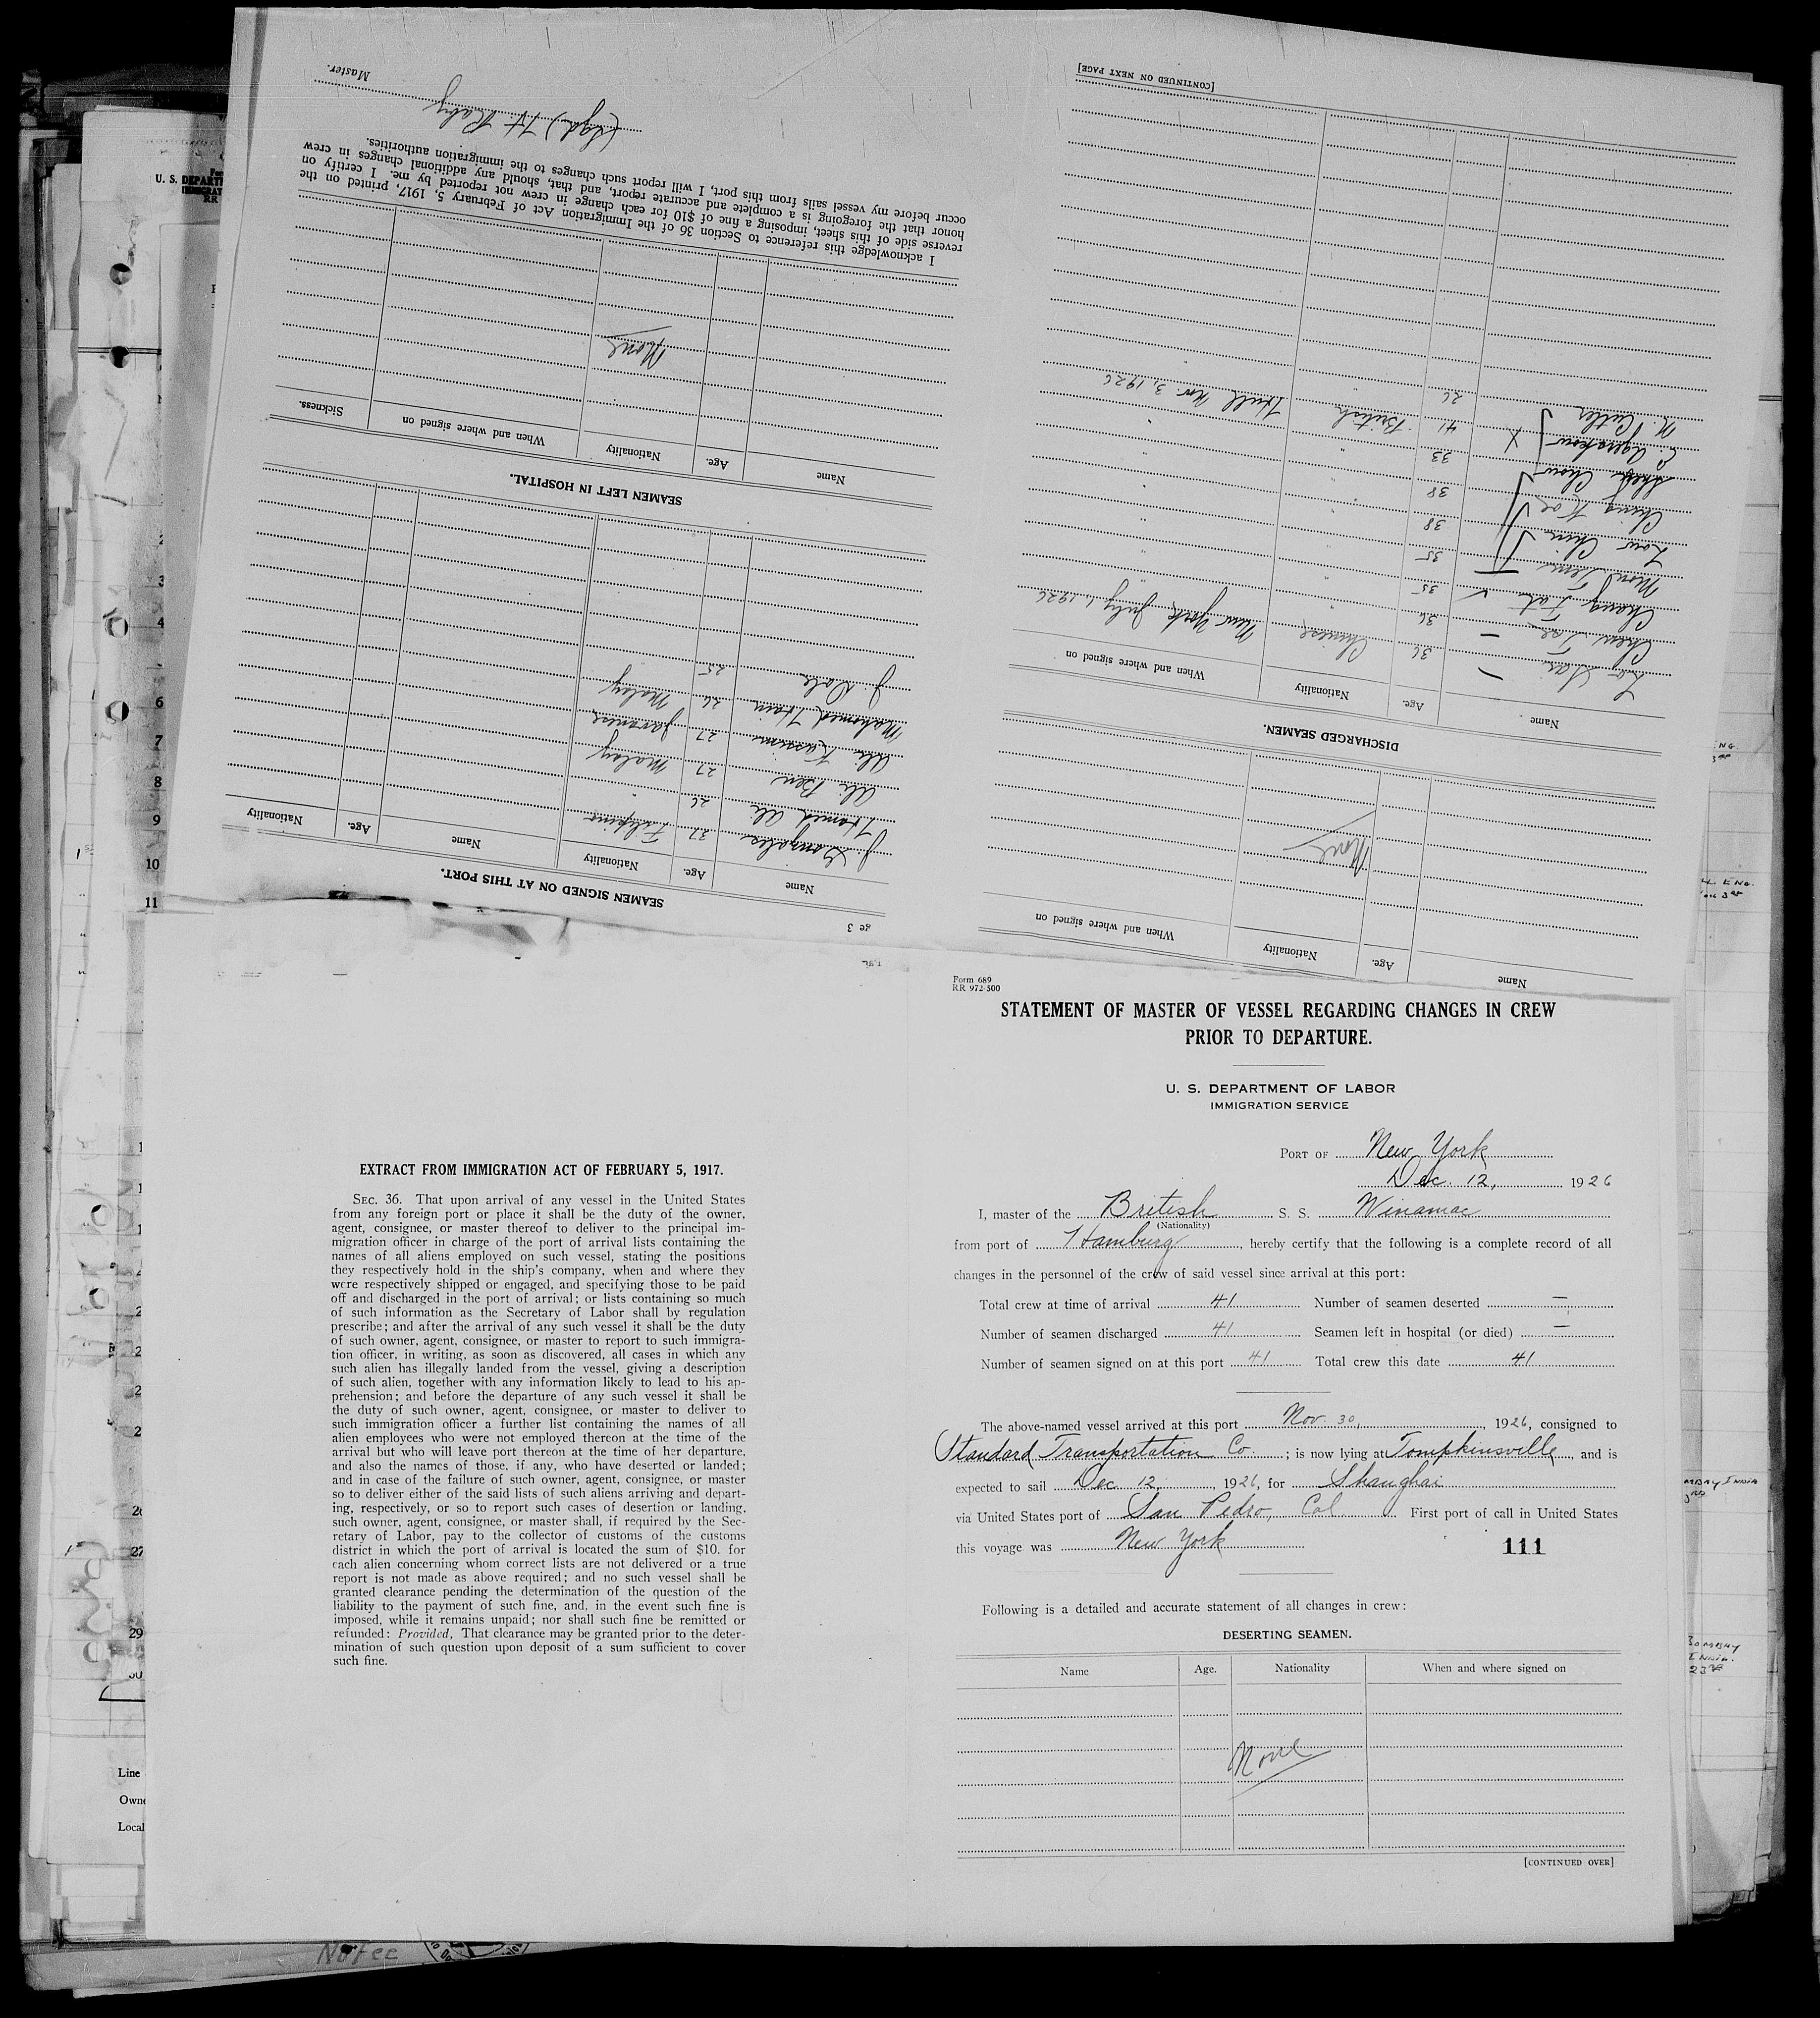 Form 689
RR 972-500
STATEMENT OF MASTER OF VESSEL REGARDING CHANGES IN CREW
PRIOR TO DEPARTURE.
U. S. DEPARTMENT OF LABOR
IMMIGRATION SERVICE
PORT OF New York
Dec. 12, 1926
I, master of the British S. S. Winamac
(Nationality)
from port of Hamburg, hereby certify that the following is a complete record of all
changes in the personnel of the crew of said vessel since arrival at this port:
Total crew at time of arrival 41 Number of seamen deserted —
Number of seamen discharged 41 Seamen left in hospital (or died) —
Number of seamen signed on at this port 41 Total crew this date 41
The above-named vessel arrived at this port Nov. 30, 1926, consigned to
Standard Transportation Co. ; is now lying at Tompkinsville, and is
expected to sail Dec. 12, 1926, for Shanghai
via United States port of San Pedro, Cal First port of call in United States
this voyage was New York
111
Following is a detailed and accurate statement of all changes in crew:
DESERTING SEAMEN.
Name Age. Nationality When and where signed on
None
[CONTINUED OVER]
EXTRACT FROM IMMIGRATION ACT OF FEBRUARY 5, 1917.
SEC. 36. That upon arrival of any vessel in the United States
from any foreign port or place it shall be the duty of the owner,
agent, consignee, or master thereof to deliver to the principal im-
migration officer in charge of the port of arrival lists containing the
names of all aliens employed on such vessel, stating the positions
they respectively hold in the ship's company, when and where they
were respectively shipped or engaged, and specifying those to be paid
off and discharged in the port of arrival; or lists containing so much
of such information as the Secretary of Labor shall by regulation
prescribe; and after the arrival of any such vessel it shall be the duty
of such owner, agent, consignee, or master to report to such immigra-
tion officer, in writing, as soon as discovered, all cases in which any
such alien has illegally landed from the vessel, giving a description
of such alien, together with any information likely to lead to his ap-
prehension; and before the departure of any such vessel it shall be
the duty of such owner, agent, consignee, or master to deliver to
such immigration officer a further list containing the names of all
alien employees who were not employed thereon at the time of the
arrival but who will leave port thereon at the time of her departure,
and also the names of those, if any, who have deserted or landed;
and in case of the failure of such owner, agent, consignee, or master
so to deliver either of the said lists of such aliens arriving and depart-
ing, respectively, or so to report such cases of desertion or landing,
such owner, agent, consignee, or master shall, if required by the Sec-
retary of Labor, pay to the collector of customs of the customs
district in which the port of arrival is located the sum of $10. for
each alien concerning whom correct lists are not delivered or a true
report is not made as above required; and no such vessel shall be
granted clearance pending the determination of the question of the
liability to the payment of such fine, and, in the event such fine is
imposed, while it remains unpaid; nor shall such fine be remitted or
refunded: Provided, That clearance may be granted prior to the deter-
mination of such question upon deposit of a sum sufficient to cover
such fine.
Name Age. Nationality When and where signed on
None
DISCHARGED SEAMEN.
Name Age. Nationality When and where signed on
36 Chinese New York July 1, 1926
Chew 36 " "
Chang Fat 35 " "
35 " "
Low Chin 38 " "
Ching Koe 38 " "
Chow 33 " "
41 British Hull Nov. 3, 1926
M. Cutler 26 " "
[CONTINUED ON NEXT PAGE]
ge 3
SEAMEN SIGNED ON AT THIS PORT.
Name Age. Nationality Name Age. Nationality
J. Gonzales 37 Filipino
Hamed Ali 26 "
Ali Ben 27 Malay
Ali Kassim 27 Javanese
Mahomed 26 Malay
J. Dole 25
SEAMEN LEFT IN HOSPITAL.
Name Age. Nationality When and where signed on Sickness.
None
I acknowledge this reference to Section 36 of the Immigration Act of February 5, 1917, printed on the
reverse side of this sheet, imposing a fine of $10 for each change in crew not reported by me. I certify on
honor that the foregoing is a complete and accurate report, and that, should any additional changes in crew
occur before my vessel sails from this port, I will report such changes to the immigration authorities.
(Sgd) H Raby
Master.